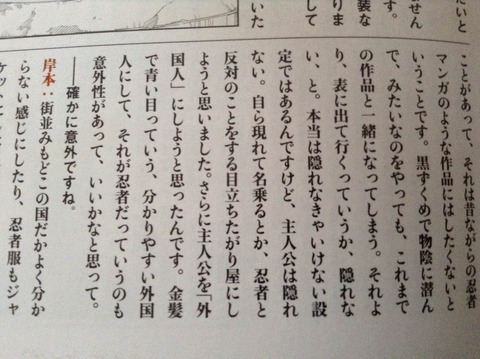 たいと
ません
す。
装な
りま
して
いた
ことがあって、それは昔ながらの忍者
マンガのような作品にはしたくないと
いうことです。黒ずくめで物陰に潜ん
で、みたいなのをやっても、これまで
の作品と一緒になってしまう。それよ
り、表に出て行くっていうか、隠れな
い、と。本当は隠れなきゃいけない設
定ではあるんですけど、主人公は隠れ
ない。自ら現れて名乗るとか、忍者と
反対のことをする目立ちたがり屋にし
ようと思いました。さらに主人公を「外
国人」にしようと思ったんです。金髪
で青い目っていう、分かりやすい外国
人にして、それが忍者だっていうのも
意外性があって、いいかなと思って。
――確かに意外ですね。
岸本：街並みもどこの国だかよく分か
らない感じにしたり、忍者服もジャ